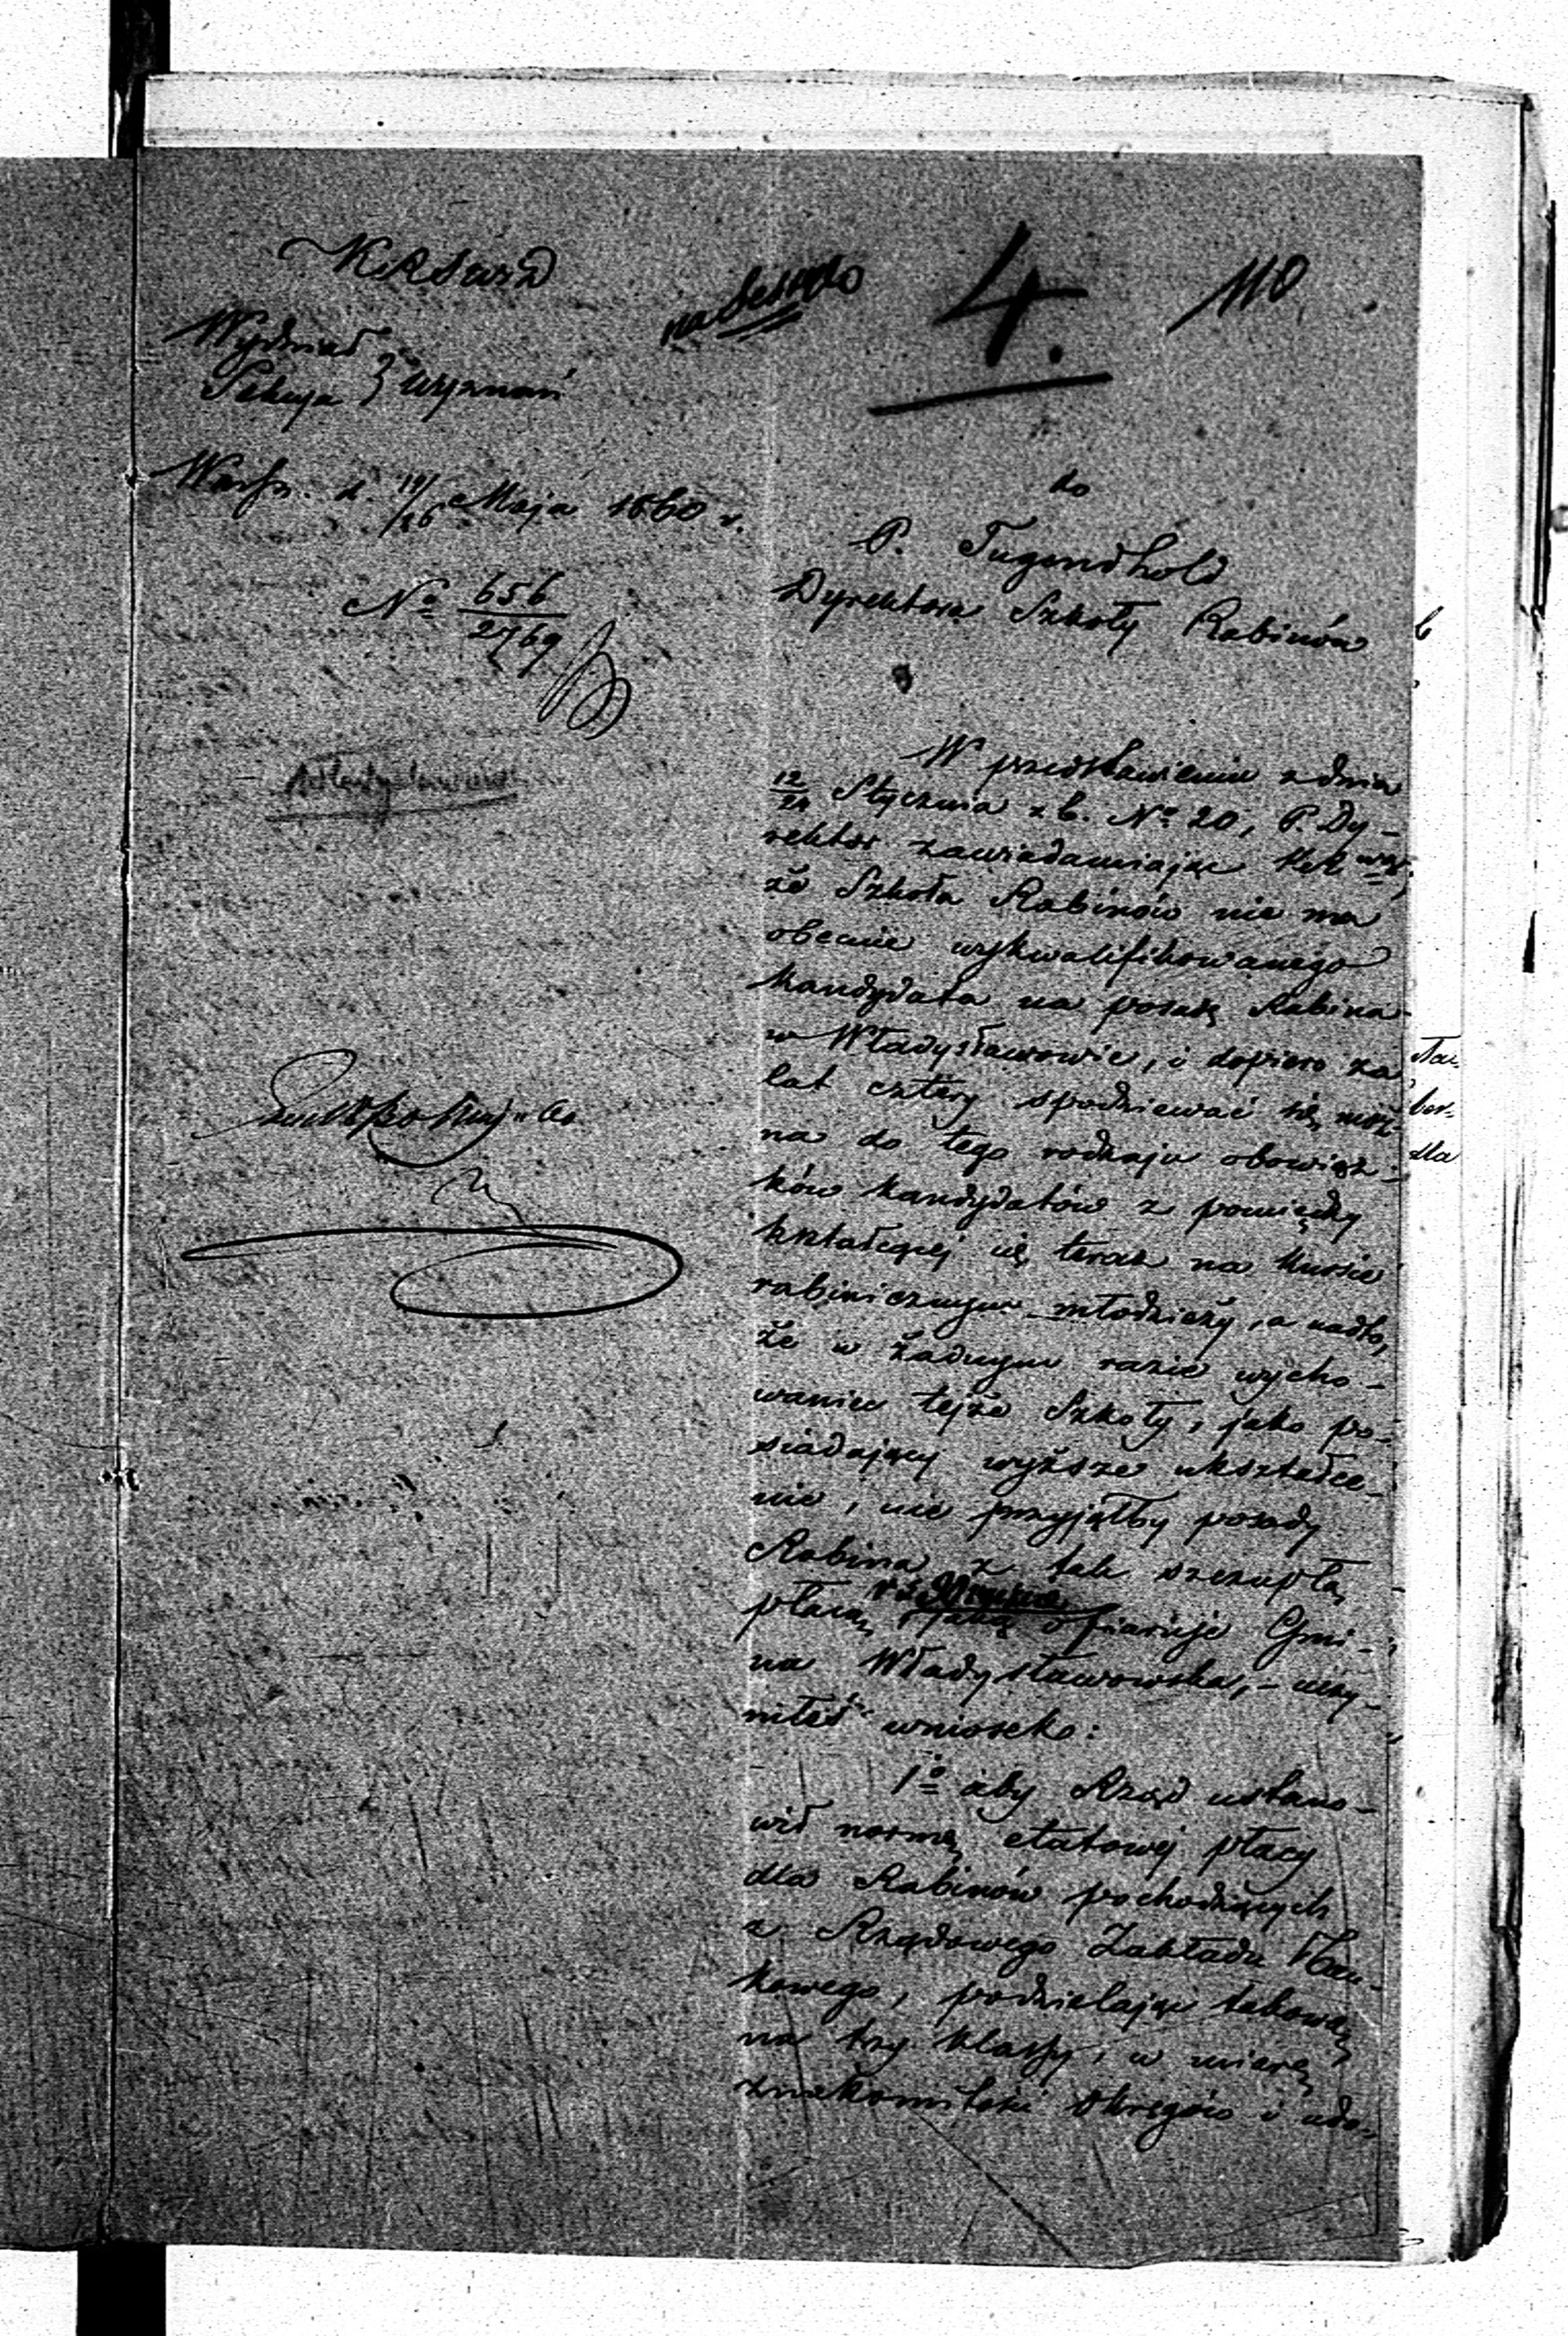 KRSW i D
Wydział
Sekcja } Wyznań
Warsz. d. 14/26 Maja 1860 r.
No 656/2769
4.
110
do
P. Tugendhold
Dyrektora Szkoły Rabinów
W przedstawieniu z dnia
12/24 Stycznia z b. No 20, P. Dy-
rektor zawiadamiając KR
że Szkoła Rabinów nie ma
obecnie wykwalifikowanego
kandydata na posadę Rabina
w Władysławowie, i dopiero za
lat cztery spodziewać się moż-
na do tego rodzaju obowiąz-
ków kandydatów z pomiędzy
kształcącej się teraz na kursie
rabinicznym młodzieży, a nadto,
że w żadnym razie wycho-
waniec tejże Szkoły, jako po-
siadający wyższe ukształce-
nie, nie przyjąłby posady
Rabina z tak szczupłą
płacą, jaką ofiaruje Gmi-
na Władysławowska, - uczy-
niłeś wniosek:
1o aby Rząd ustano-
wił normę etatowej płacy
dla Rabinów pochodzących
z Rządowego Zakładu Nau-
kowego, podzielając takową
na trzy klassy, w miarę
znakomitości Okręgów i udo-